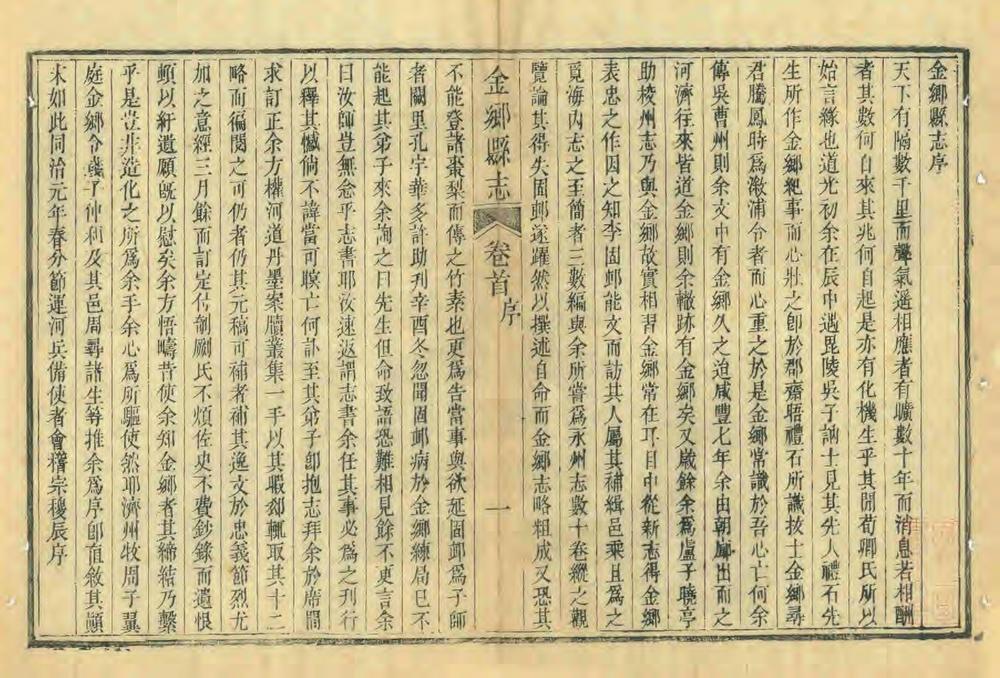 金鄉縣志序
天下有隔數千里而聲氣遥相應者有曠數十年而消息若相酬
者其數何自來其兆何自起是亦有化機生乎其閒荀卿氏所以
始言緣也道光初余在辰中遇毘陵吳子訥士見其先人禮石先
生所作金鄉紀事而心壯之卽於郡齋晤禮石所識拔士金鄉尋
君騰鳳時爲漵浦令者而心重之於是金鄉常識於吾心亡何余
傳吳曹州則余文中有金鄉久之迨咸豐七年余由朝廊出而之
河濟行來皆道金鄉則余轍跡有金鄉矣又歲餘余爲盧子曉亭
助校州志乃與金鄉故實相習金鄉常在耳目中從新志得金鄉
表忠之作因之知李固邨能文而訪其人屬其補緝邑乘且爲之
覓海內志之至簡者三數編與余所嘗爲永州志數十卷縱之觀
覽論其得失固邨遂躍然以撰述自命而金鄉志略粗成又恐其
金鄉縣志 卷首 序 一
不能登諸棗梨而傳之竹素也更爲告當事與欲延固邨爲子師
者闕里孔宇華多許助刋辛酉冬忽聞固邨病於金鄉練局已不
能起其弟子來余詢之曰先生但命致語恐難相見餘不更言余
曰汝師豈無念乎志書耶汝速返謂志書余任其事必爲之刋行
以釋其憾倘不諱當可瞑亡何訃至其弟子卽抱志拜余於席間
求訂正余方權河道丹墨案牘叢集一手以其暇郄輒取其十二
略而徧閱之可仍者仍其元稿可補者補其逸文於忠義節烈尤
加之意經三月餘而訂定付剞劂氏不煩佐史不費鈔錄而遺恨
頓以紓遺願旣以慰矣余方悟疇昔使余知金鄉者其締結乃繫
乎是豈非造化之所爲余手余心爲所驅使然耶濟州牧周子翼
庭金鄉令錢子仲和及其邑周尋諸生等推余爲序卽直敘其顚
末如此同治元年春分節運河兵備使者會稽宗稷辰序